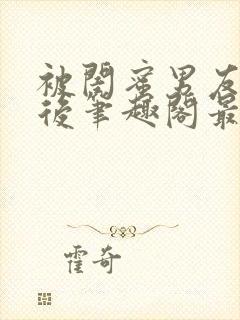 被閤蜜男友
後筆趣閣最
霍奇